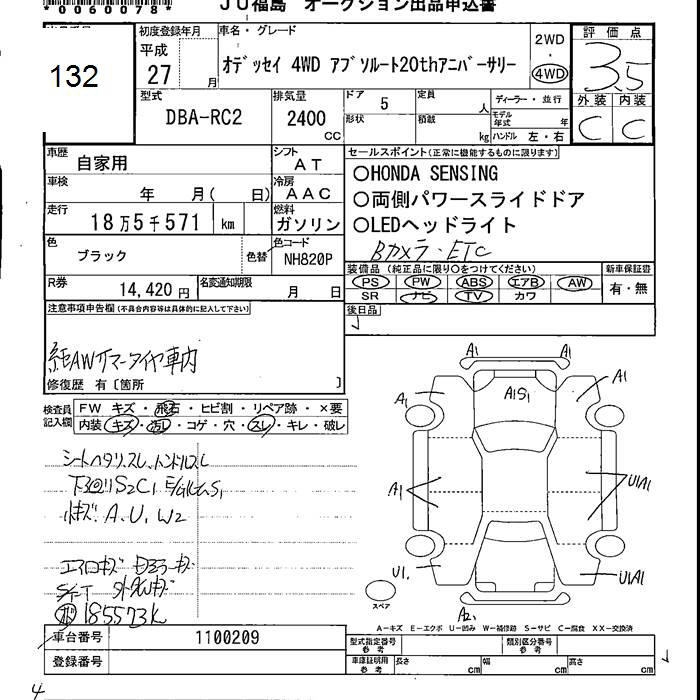 *0060078*
JU福島 オークション出品申込書
132
初度登録年月
平成
27 月
車名・グレード
オデッセイ 4WD アブソルート20thアニバーサリー
2WD
・
4WD
評価点
3.5
外装 内装
C C
型式
DBA-RC2
排気量
2400
CC
ドア 5
形状
定員 人
積載 kg
ディーラー・並行
モデル年式 年
ハンドル 左・右
車歴
自家用
シフト
AT
車検
年 月( 日)
冷房
AAC
走行
18万5千571 km
燃料
ガソリン
色
ブラック
色替
色コード
NH820P
R券
14,420円
名変通知期限
月 日
セールスポイント(正常に機能するものに限ります)
○HONDA SENSING
○両側パワースライドドア
○LEDヘッドライト
Bカメラ・ETC
装備品(純正品に限り○をつけてください)
PS PW ABS エアB AW
SR ナビ TV カワ
新車保証書
有・無
後日品
注意事項申告欄(不具合内容等は具体的に記入して下さい)
純AWサマータイヤ車内
修復歴 有〔箇所 〕
検査員
記入欄
FW キズ・飛石・ヒビ割・リペア跡・×要
内装 キズ・汚レ・コゲ・穴・スレ・キレ・破レ
シートヘタリ、スレ、ハンドルスレ
A、U、W2
185573K
車台番号 1100209
登録番号
A1 A1
A1 A1S1 A1
A1 U1A1
U1 U1A1
A2
スペア
A-キズ E-エクボ U-凹み W-補修跡 S-サビ C-腐食 XX-交換済
型式指定番号
参考
類別区分番号
参考
車庫証明用
参考
長さ cm 幅 cm 高さ cm
4